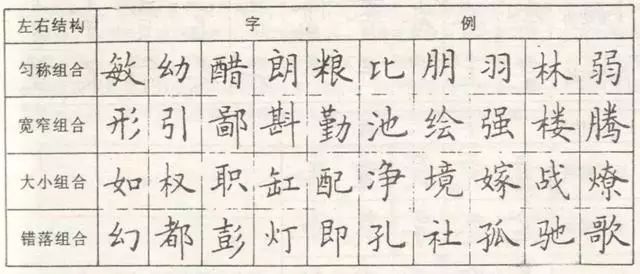 左右结构 字 例
匀称组合 敏 幼 醋 朗 粮 比 朋 羽 林 弱
宽窄组合 形 引 鄙 斟 勤 池 绘 强 楼 腾
大小组合 如 权 职 缸 配 净 境 嫁 战 燎
错落组合 幻 都 彭 灯 即 孔 社 孤 驰 歌